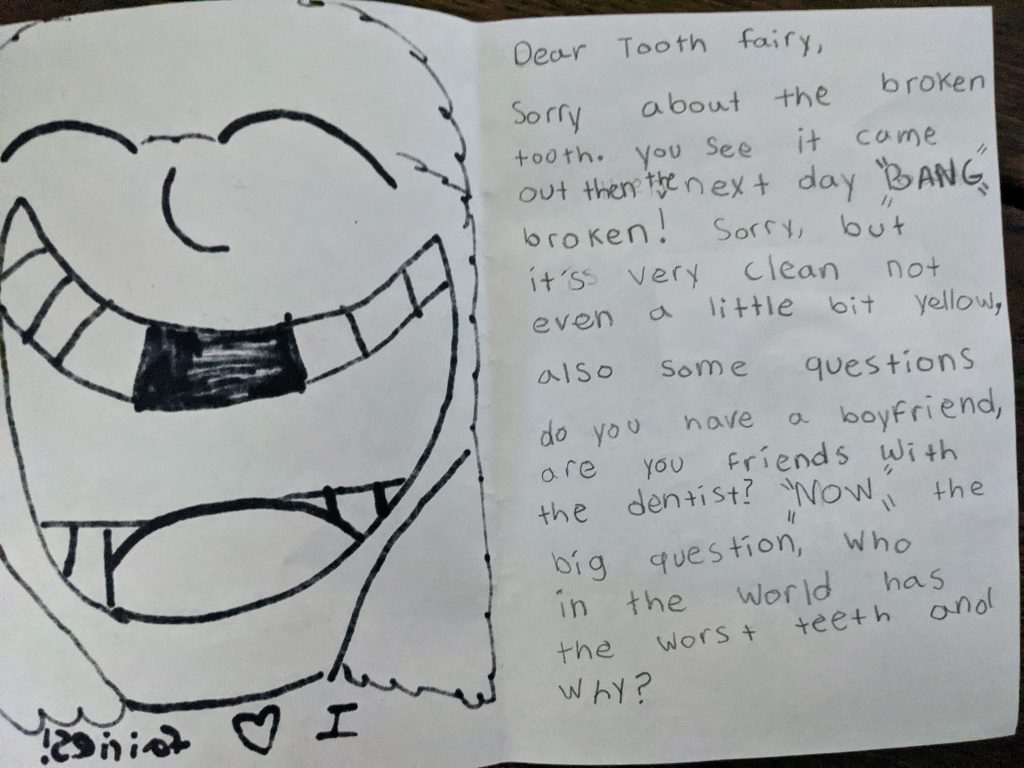 Dear Tooth fairy,
Sorry about the broken
tooth. you see it came
out then the next day "BANG"
broken! Sorry, but
it'ss very clean not
even a little bit yellow,
also some questions
do you have a boyfriend,
are you friends with
the dentist? "NOW" the
big question, who
in the world has
the worst teeth and
why?
I ♡ fairies!